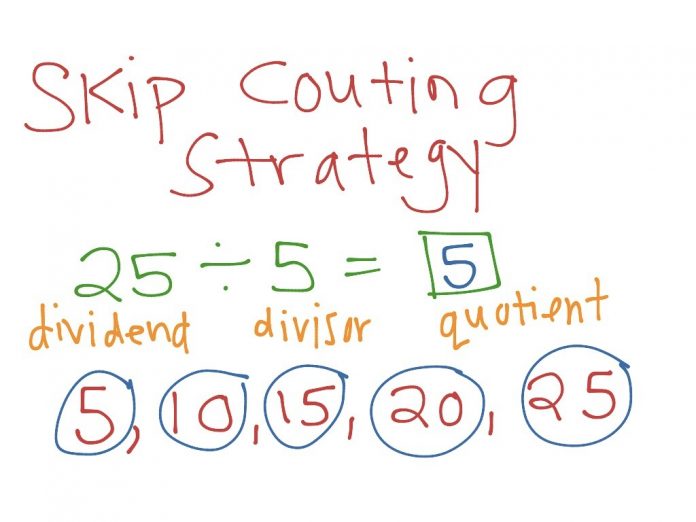 SKip Couting
Strategy
25 ÷ 5 = 5
dividend divisor quotient
5, 10, 15, 20, 25